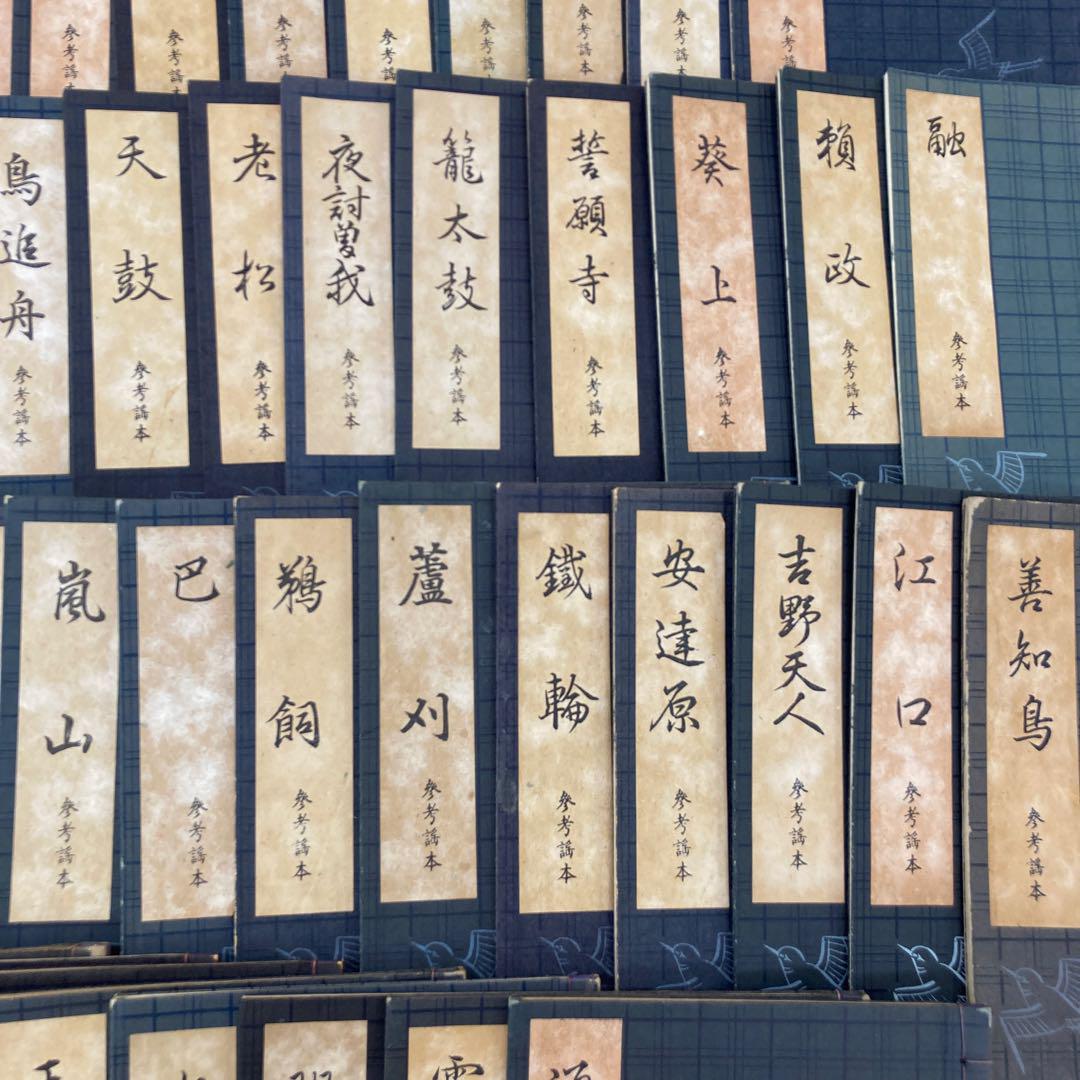 參考謠本
參考謠本
參考謠本
參考謠本
參考謠本
參考謠本
參考謠本
參考謠本
鳥追舟
參考謠本
天鼓
參考謠本
老松
參考謠本
夜討曽我
參考謠本
籠太鼓
參考謠本
誓願寺
參考謠本
葵上
參考謠本
賴政
參考謠本
融
參考謠本
嵐山
參考謠本
巴
參考謠本
鵜飼
參考謠本
蘆刈
參考謠本
鐵輪
參考謠本
安達原
參考謠本
吉野天人
參考謠本
江口
參考謠本
善知鳥
參考謠本